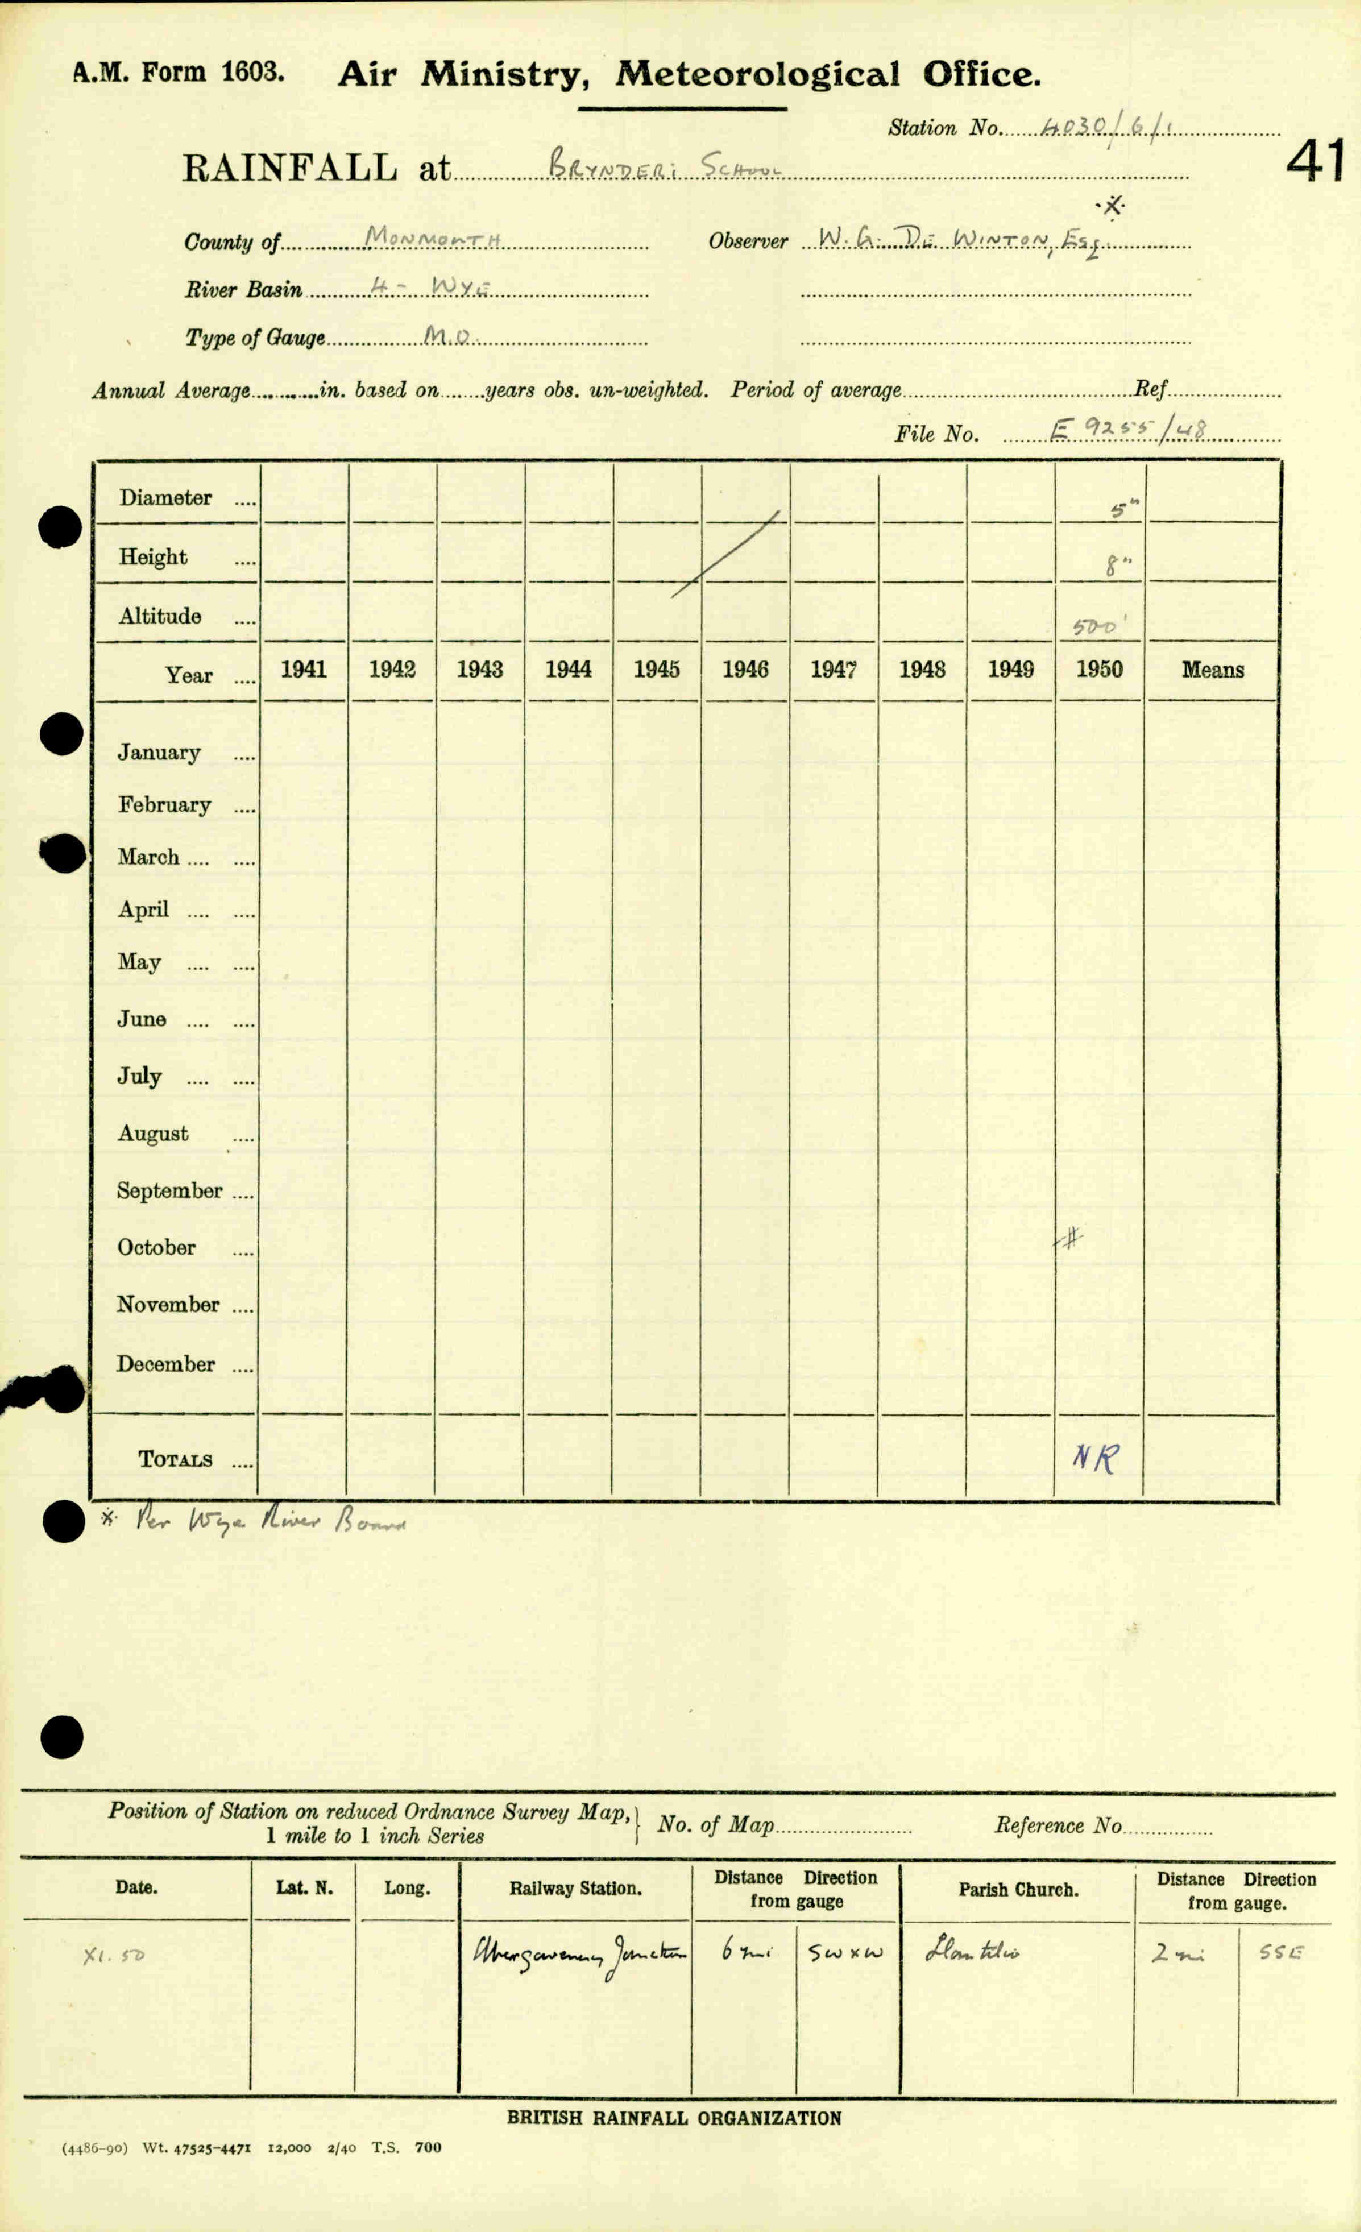 A.M. Form 1603. Air Ministry, Meteorological Office.
Station No. 4030/6/1
41
RAINFALL at BRYNDERI SCHOOL
*
County of MONMOUTH Observer W. G. DE WINTON, Esq.
River Basin 4 - WYE
Type of Gauge M.O.
Annual Average in. based on years obs. un-weighted. Period of average Ref.
File No. E 9255/48
Diameter 5"
Height 8"
Altitude 500'
Year 1941 1942 1943 1944 1945 1946 1947 1948 1949 1950 Means
January
February
March
April
May
June
July
August
September
October #
November
December
TOTALS NR
* Per Wye River Board
Position of Station on reduced Ordnance Survey Map, } No. of Map Reference No.
1 mile to 1 inch Series
Date. Lat. N. Long. Railway Station. Distance Direction from gauge Parish Church. Distance Direction from gauge.
XI. 50 Abergavenny Junction 6 mi SW x W Llantilio 2 mi SSE
BRITISH RAINFALL ORGANIZATION
(4486-90) Wt. 47525-4471 12,000 2/40 T.S. 700